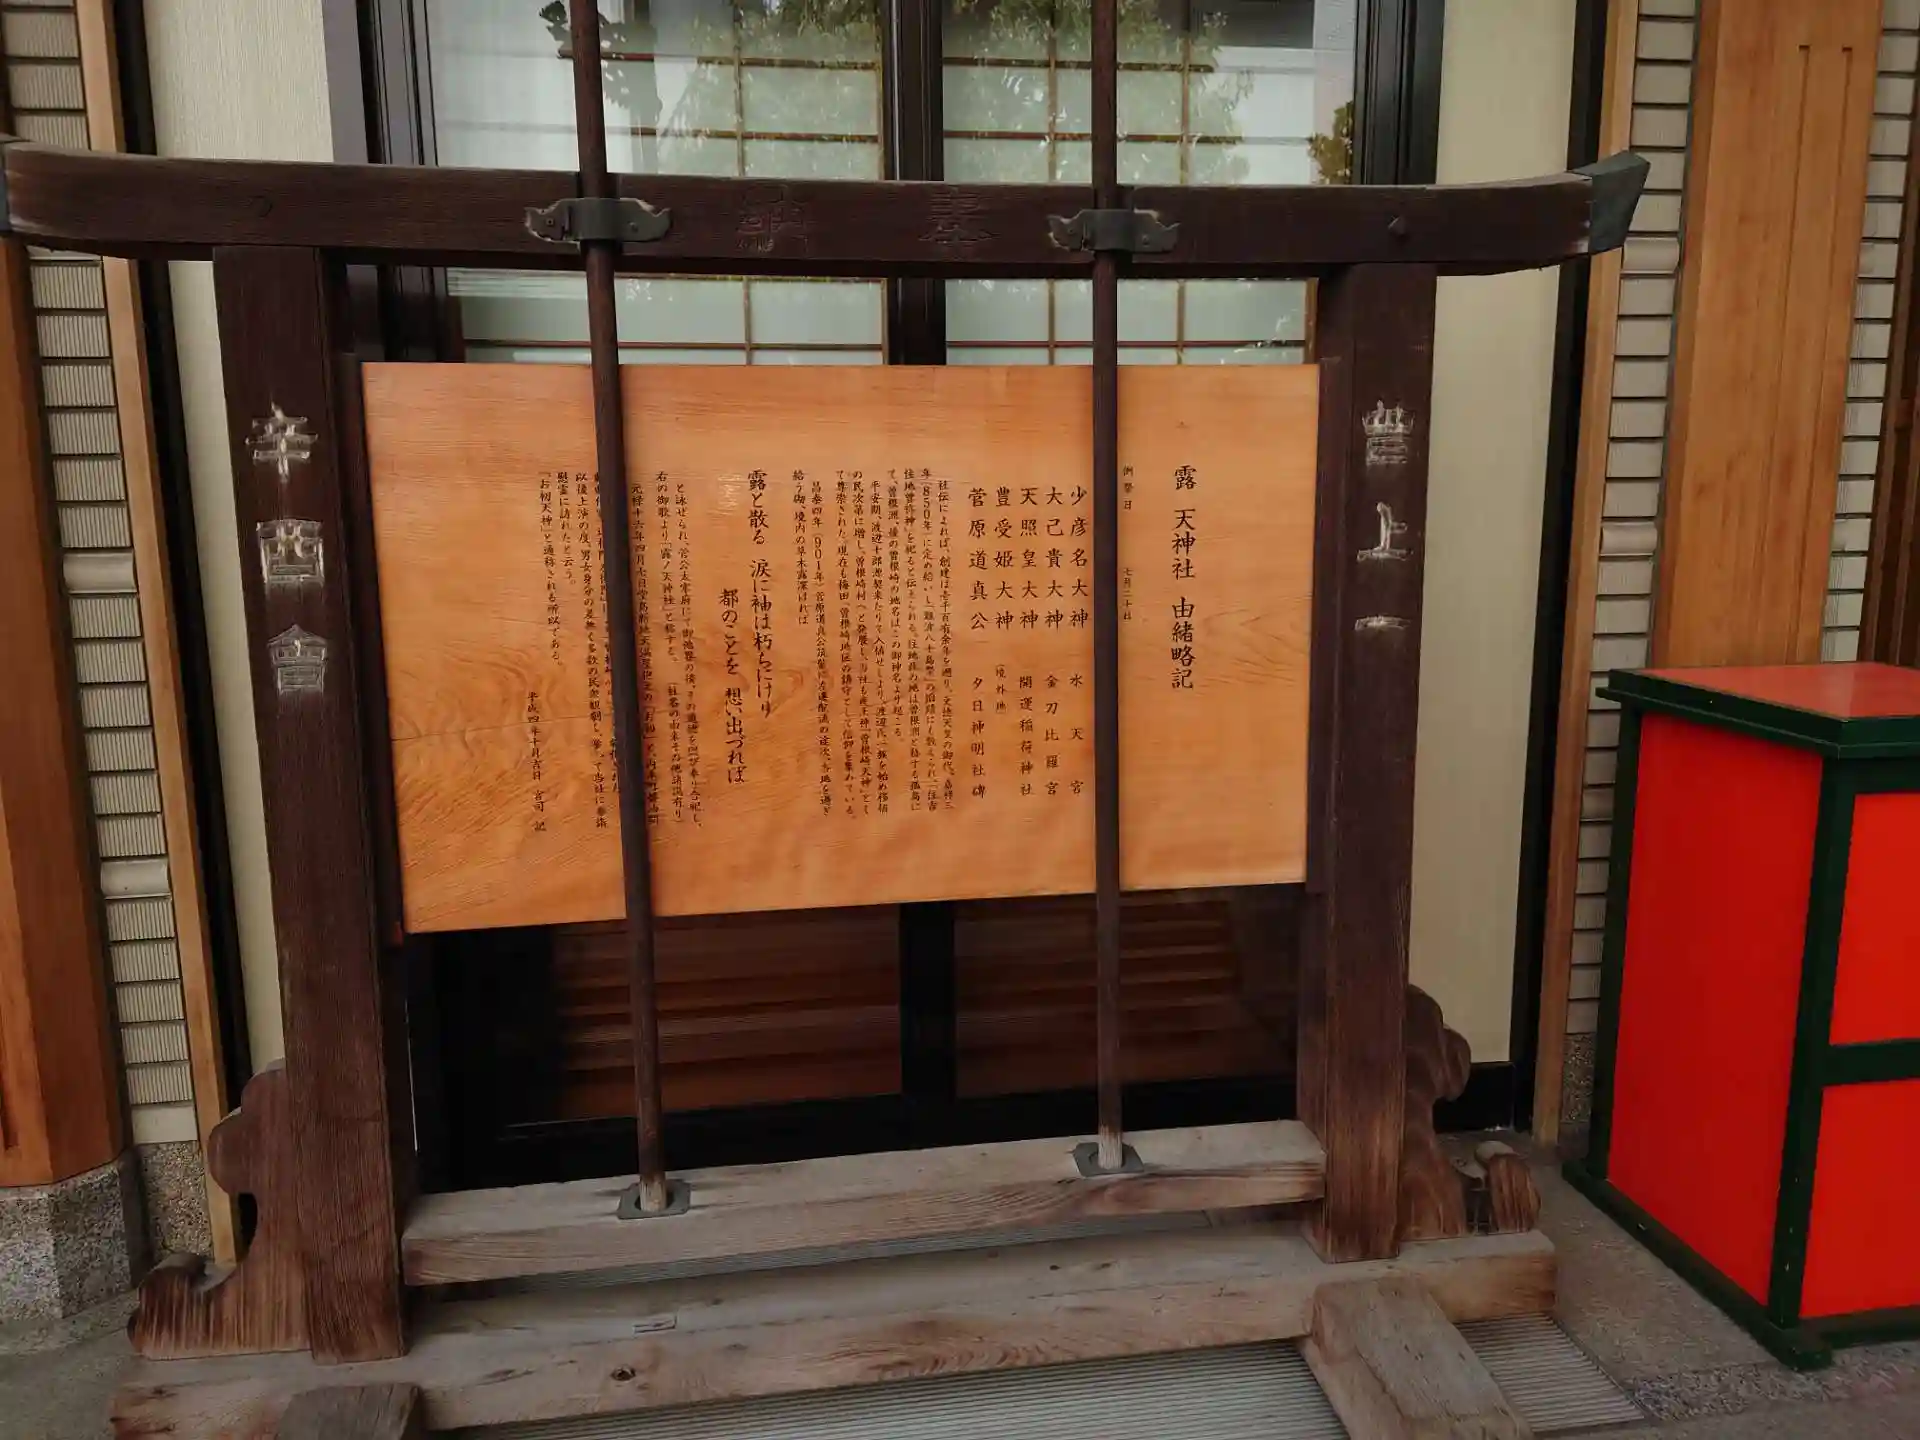 奉納
曽上一
露 天神社 由緒略記
例祭日 七月二十日
少彦名大神 水天宮
大己貴大神 金刀比羅宮
天照皇大神 開運稲荷神社
豊受姫大神 (境外地)
菅原道真公 夕日神明社碑
社伝によれば、創建は壱千百有余年を遡り、文徳天皇の御代、嘉祥三
年(850年)に定め給いし「難波八十島祭」の旧蹟にも数えられ、「住吉
住地曽祢神」を祀ると伝えられる。往地在の地は曽根洲と称する孤島に
て、曽根洲、後の曽根崎の地名はこの御神名より起こる。
平安期、渡辺十郎源契来たりて入植せしより、渡辺氏一族を始め移植
の民次第に増し、曽根崎村へと発展し、当社も産土神「曽根崎天神」とし
て尊崇された。現在も梅田、曽根崎地区の鎮守として信仰を集めている。
昌泰四年(901年)菅原道真公筑紫に左遷配流の途次、当地を過ぎ
給う砌、境内の草木露深ければ
露と散る 涙に袖は朽ちにけり
都のことを 想い出づれば
と詠ぜられ、菅公太宰府にて御逝去の後、その遺徳を偲び奉り合祀し、
右の御歌より「露ノ天神社」と称する。 (社名の由来その他諸説有り)
元禄十六年四月七日堂島新地天満屋抱えの「お初」と、内本町醤油問
以後上演の度、男女身分の差無く多数の民衆観劇し、挙って当社に参詣
慰霊に訪れたと云う。
「お初天神」と通称される所以である。
平成四年十月吉日 宮司 記
辛酉會